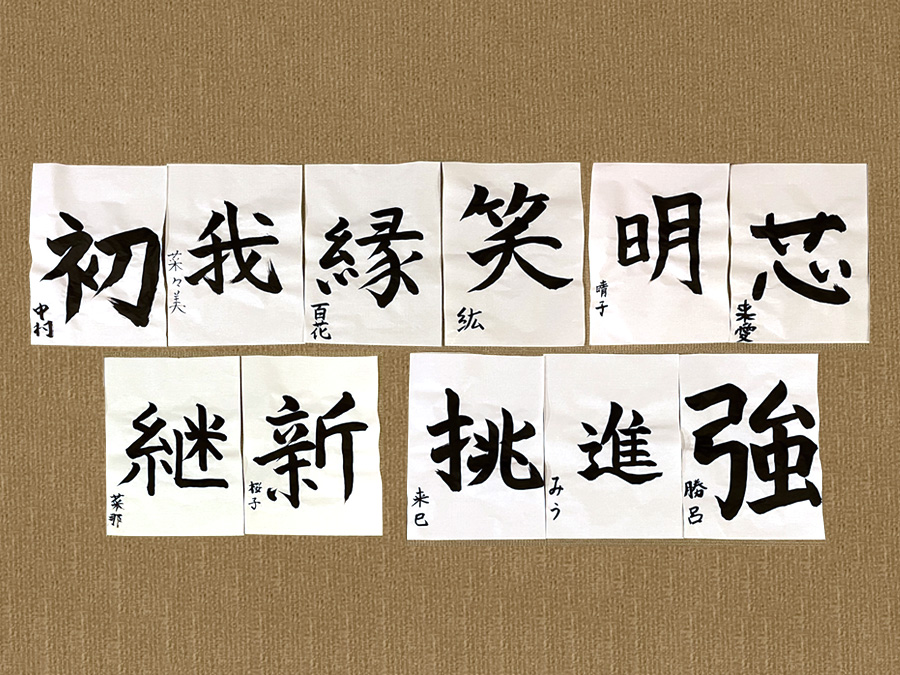 初
中村
我
菜々美
縁
百花
笑
紘
明
晴子
芯
来愛
継
菜那
新
桜子
挑
来巳
進
みう
強
勝呂